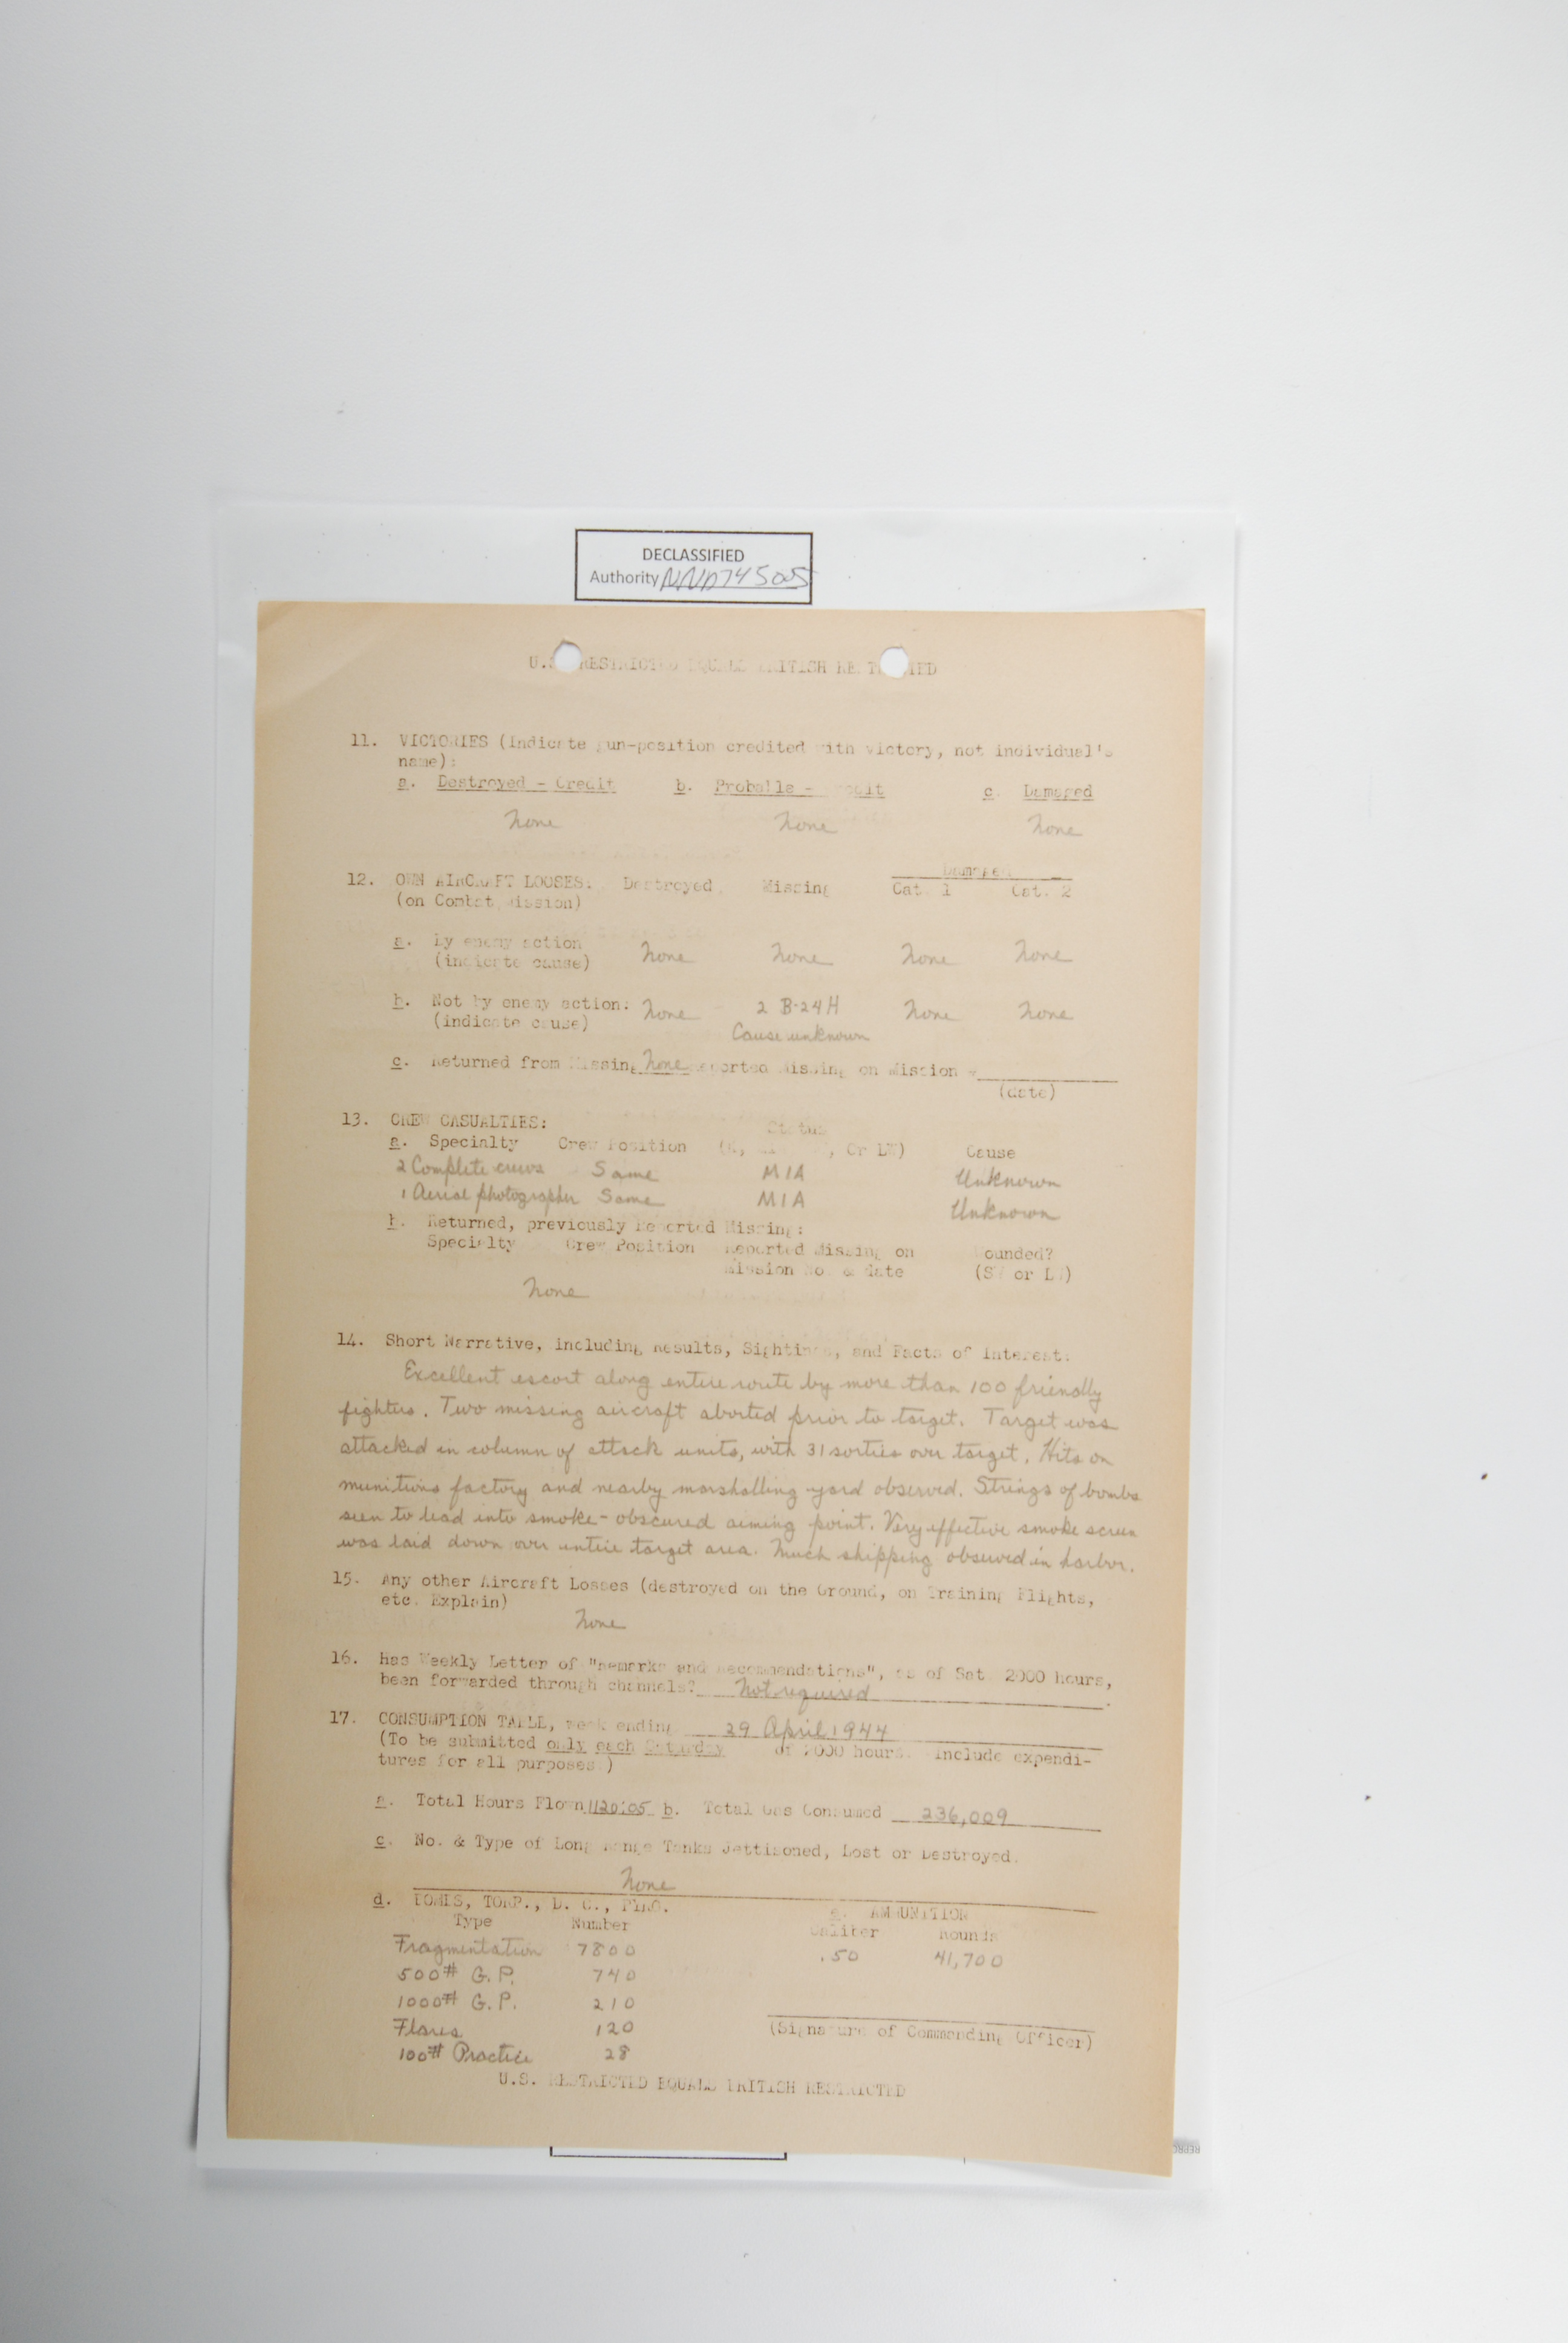 DECLASSIFIED
Authority NND745005
U.S. RESTRICTED EQUALS BRITISH RESTRICTED
11. VICTORIES (Indicate gun-position credited with victory, not individual's
name):
a. Destroyed - Credit b. Probable - Credit c. Damaged
None None None
Damaged
12. OWN AIRCRAFT LOOSES: Destroyed Missing Cat. 1 Cat. 2
(on Combat Mission)
a. By enemy action None None None None
(indicate cause)
b. Not by enemy action: None 2 B-24H None None
(indicate cause) Cause unknown
c. Returned from Missing None Reported Missing on Mission #
(date)
13. CREW CASUALTIES: Status
a. Specialty Crew Position (K, , Or LW) Cause
2 Complete crews Same MIA Unknown
1 Aerial photographer Same MIA Unknown
b. Returned, previously Reported Missing:
Specialty Crew Position Reported Missing on Wounded?
Mission No. & date (SW or LW)
None
14. Short Narrative, including Results, Sightings, and Facts of Interest:
Excellent escort along entire route by more than 100 friendly
fighters. Two missing aircraft aborted prior to target. Target was
attacked in column of attack units, with 31 sorties over target. Hits on
munitions factory and nearby marshalling yard observed. Strings of bombs
seen to lead into smoke-obscured aiming point. Very effective smoke screen
was laid down over entire target area. Much shipping observed in harbor.
15. Any other Aircraft Losses (destroyed on the Ground, on Training Flights,
etc. Explain)
None
16. Has Weekly Letter of "Remarks and Recommendations", as of Sat. 2000 hours,
been forwarded through channels? Not required.
17. CONSUMPTION TABLE, week ending 29 April 1944
(To be submitted only each Saturday of 2000 hours. Include expendi-
tures for all purposes.)
a. Total Hours Flown 1120:05 b. Total Gas Consumed 236,009
c. No. & Type of Long Range Tanks Jettisoned, Lost or Destroyed.
None
d. BOMBS, TORP., D. C., PYRO. e. AMMUNITION
Type Number Caliber Rounds
Fragmentation 7800 .50 41,700
500# G.P. 740
1000# G.P. 210
Flares 120 (Signature of Commanding Officer)
100# Practice 28
U.S. RESTRICTED EQUALS BRITISH RESTRICTED